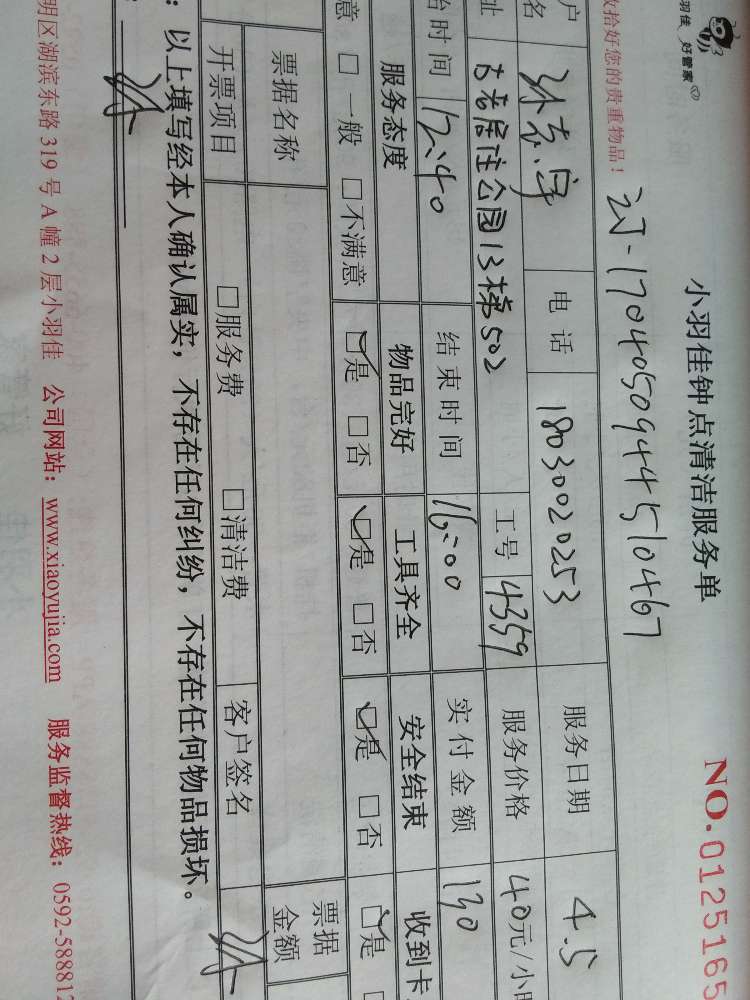 小羽佳 好管家
小羽佳钟点清洁服务单
NO.0125165
收拾好您的贵重物品！
订-1704050944510467
户名 电话 18030020253 服务日期 4.5
址 古龙居住公园13栋502 工号 4359 服务价格 40元/小时
始时间 12:40 结束时间 16:00 实付金额 130
服务态度 物品完好 工具齐全 安全结束 收到卡
意 □一般 □不满意 □是 □否 □是 □否 □是 □否 □是
票据名称 票据金额
开票项目 □服务费 □清洁费 客户签名
：以上填写经本人确认属实，不存在任何纠纷，不存在任何物品损坏。
明区湖滨东路 319 号 A 幢 2 层小羽佳 公司网站：www.xiaoyujia.com 服务监督热线：0592-588812